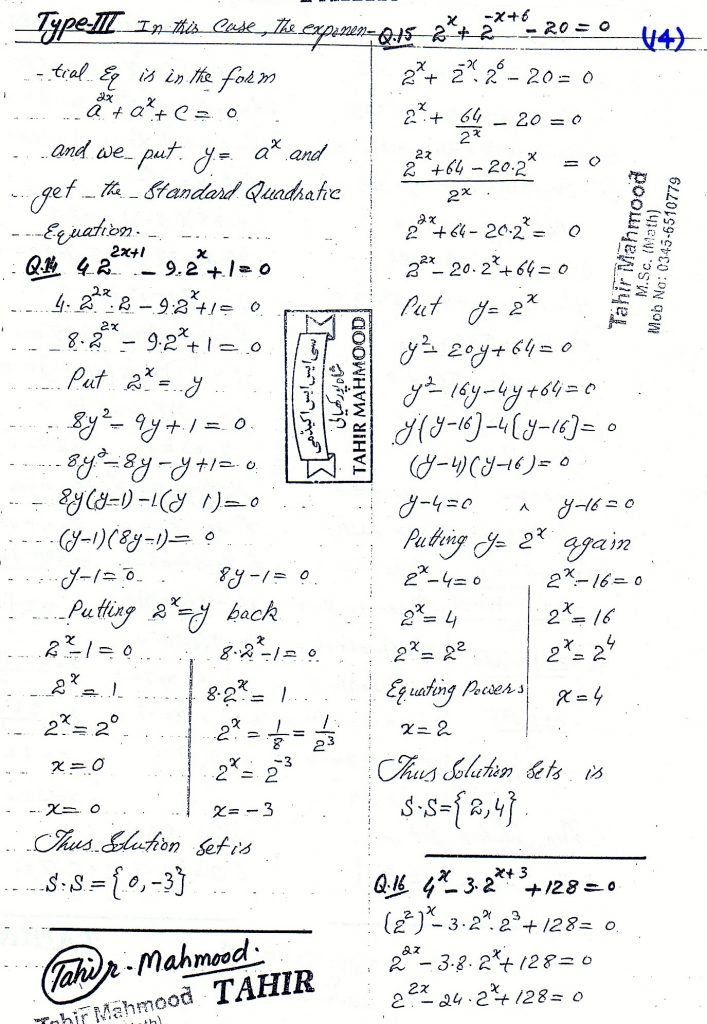 Type-III In this case, the exponen-
-tial Eq is in the form
a^2x + a^x + C = 0
and we put y = a^x and
get the Standard Quadratic
Equation.
Q.14 4.2^2x+1 - 9.2^x + 1 = 0
4.2^2x.2 - 9.2^x + 1 = 0
8.2^2x - 9.2^x + 1 = 0
Put 2^x = y
8y² - 9y + 1 = 0
8y² - 8y - y + 1 = 0
8y(y-1) - 1(y 1) = 0
(y-1)(8y-1) = 0
y-1 = 0 8y-1 = 0
Putting 2^x = y back
2^x - 1 = 0 8.2^x - 1 = 0
2^x = 1 8.2^x = 1
2^x = 2^0 2^x = 1/8 = 1/2^3
x = 0 2^x = 2^-3
x = 0 x = -3
Thus Solution set is
S.S = {0, -3}
Tahir-Mahmood.
Tahir Mahmood TAHIR
سی ایس ایس اکیڈمی
TAHIR MAHMOOD
Q.15 2^x + 2^-x+6 - 20 = 0 (14)
2^x + 2^-x.2^6 - 20 = 0
2^x + 64/2^x - 20 = 0
2^2x + 64 - 20.2^x / 2^x = 0
2^2x + 64 - 20.2^x = 0
2^2x - 20.2^x + 64 = 0
Put y = 2^x
y² - 20y + 64 = 0
y² - 16y - 4y + 64 = 0
y(y-16) - 4(y-16) = 0
(y-4)(y-16) = 0
y-4 = 0 ∧ y-16 = 0
Putting y = 2^x again
2^x - 4 = 0 2^x - 16 = 0
2^x = 4 2^x = 16
2^x = 2^2 2^x = 2^4
Equating Powers x = 4
x = 2
Thus Solution Sets is
S.S = {2, 4}
Q.16 4^x - 3.2^x+3 + 128 = 0
(2^2)^x - 3.2^x.2^3 + 128 = 0
2^2x - 3.8.2^x + 128 = 0
2^2x - 24.2^x + 128 = 0
Tahir Mahmood
M.Sc. (Math)
Mob No: 0345-6510779